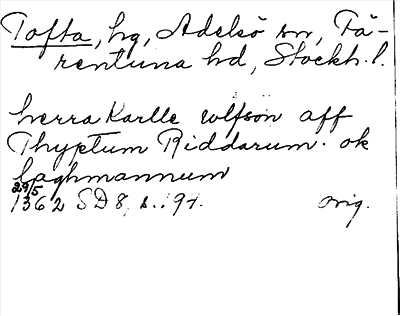 Tofta, hg, Adelsö sn, Fä-
rentuna hd, Stockh. l.
herra Karlle vlfson aff
Thyptum Riddarum. ok
laghmannum
29/5
1362 SD 8, s. 197. orig.